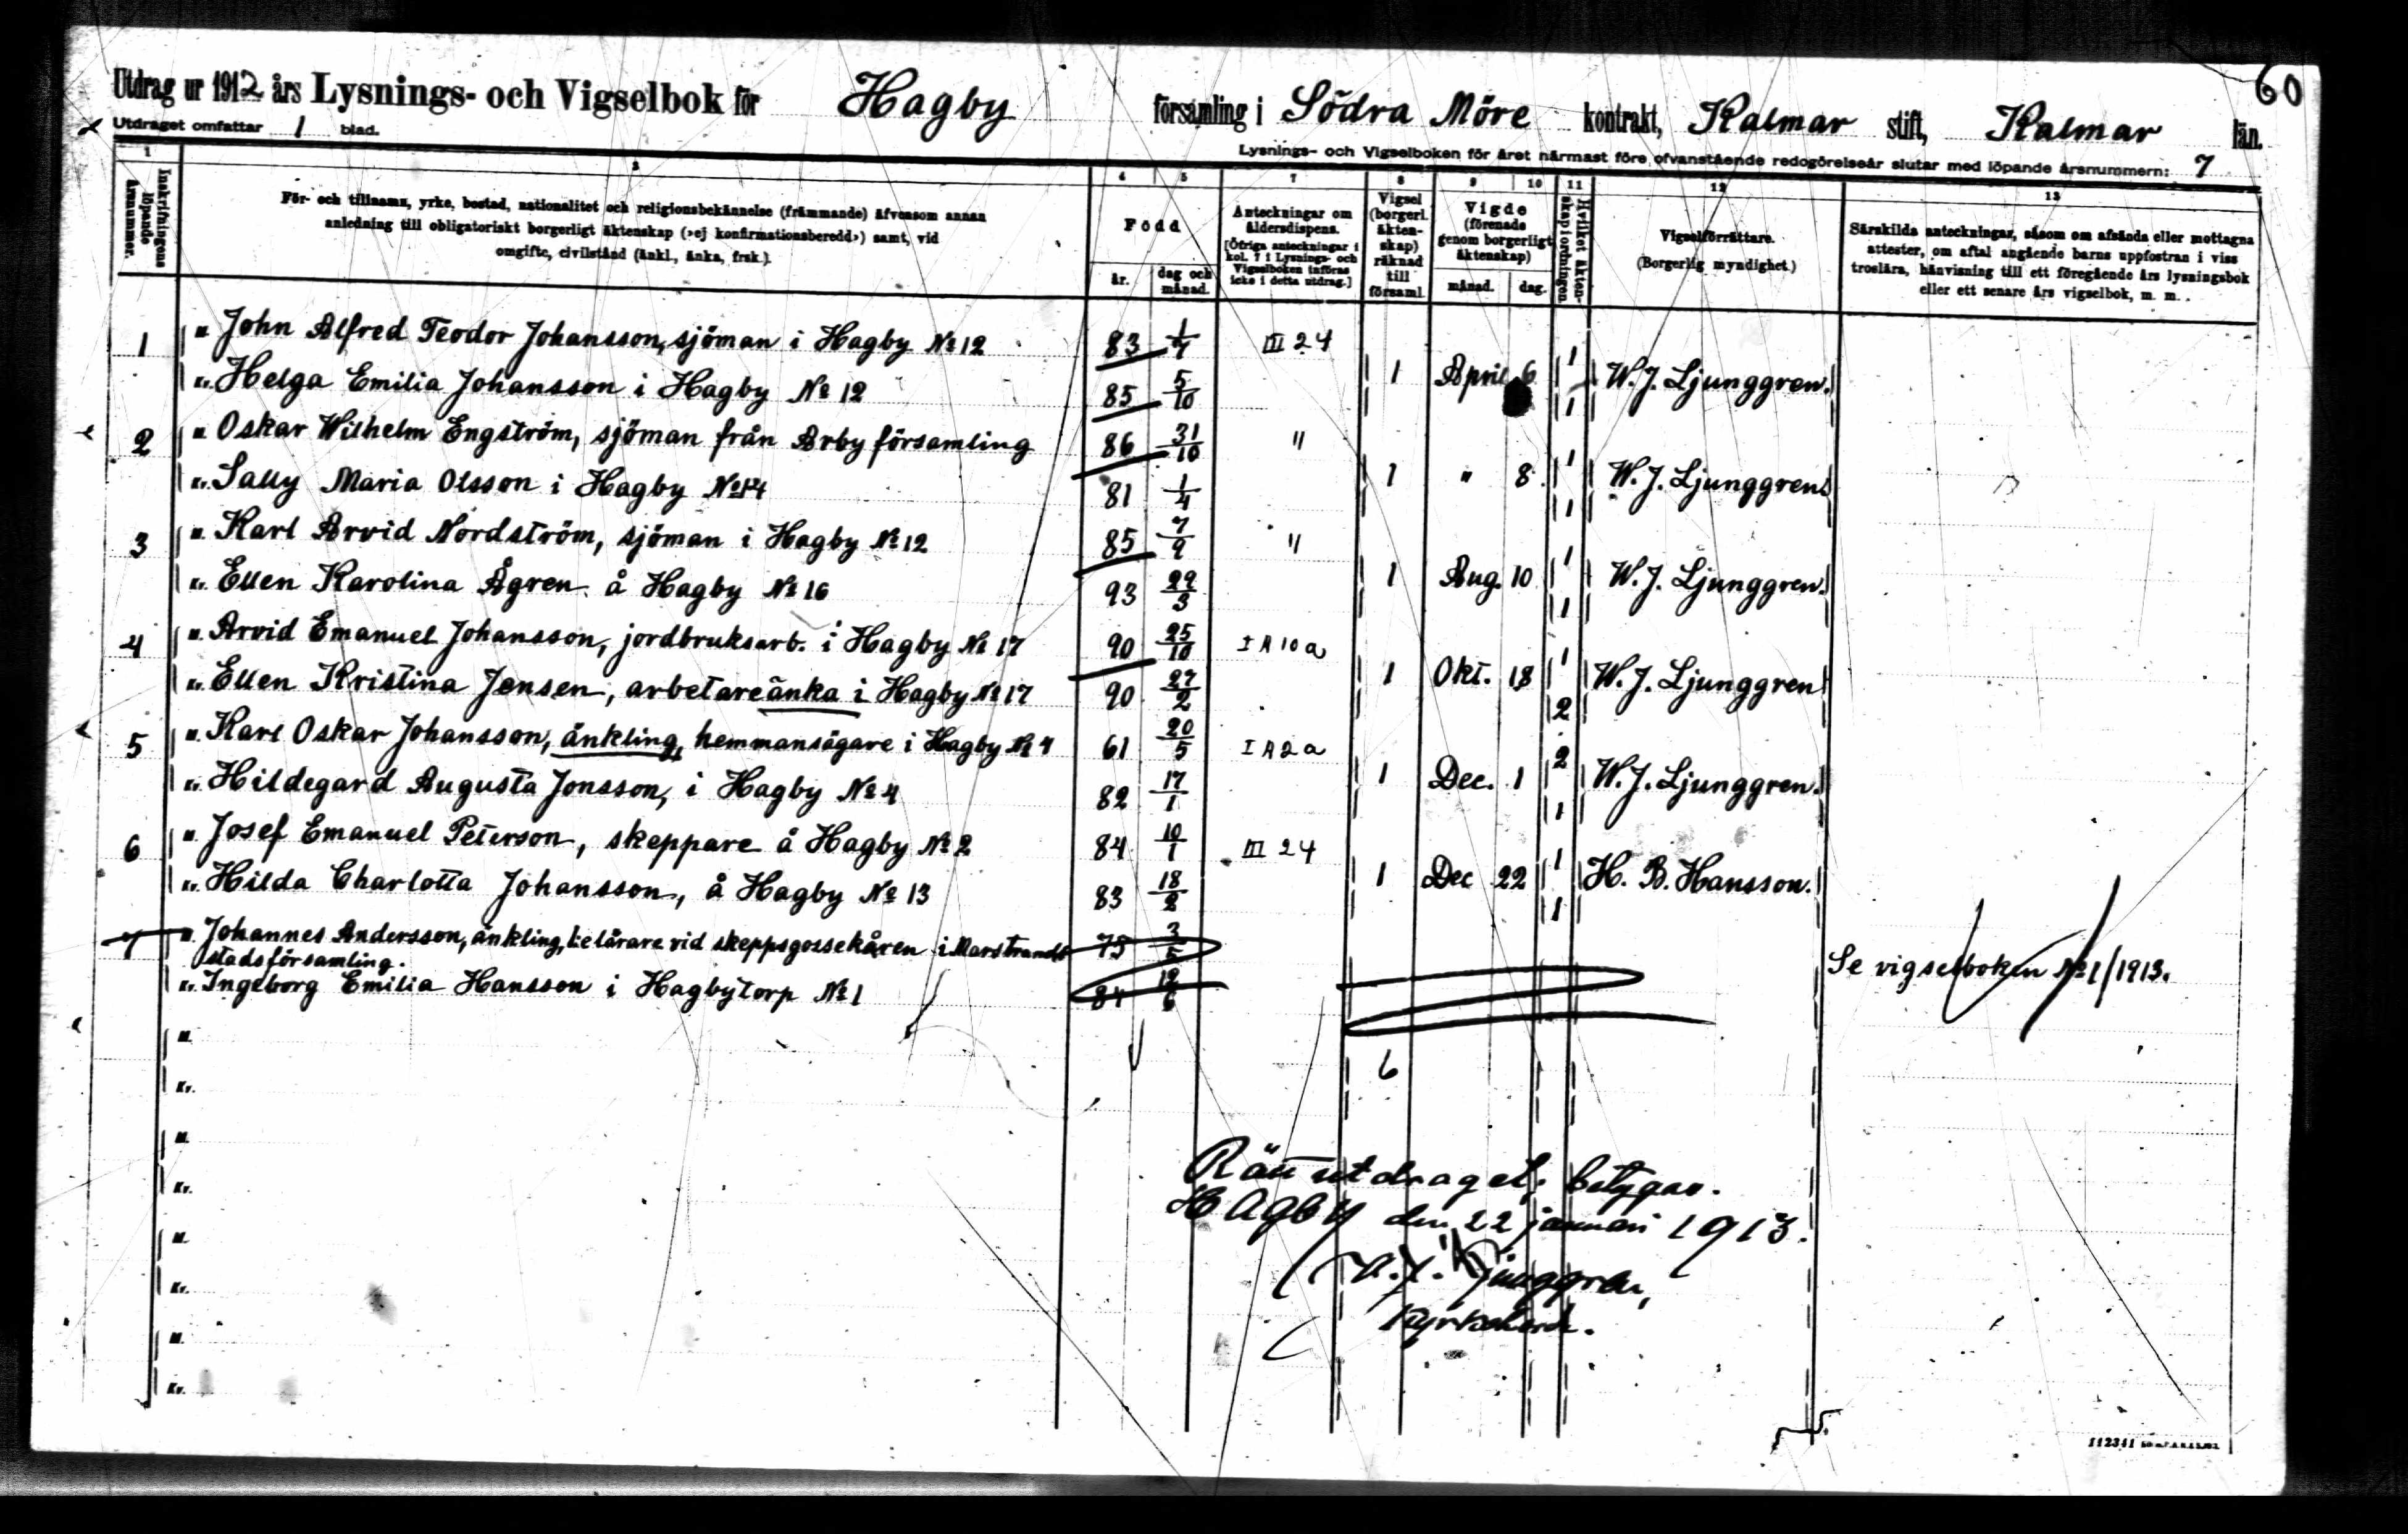 60
Utdrag ur 1912 års Lysnings- och Vigselbok för Hagby församling i Södra Möre kontrakt, Kalmar stift, Kalmar län.
Utdraget omfattar 1 blad.
Lysnings- och Vigselboken för året närmast före ofvanstående redogörelseår slutar med löpande årsnummern: 7
1 2 4 5 7 8 9 10 11 12 13
Inskrifningens löpande årsnummer.
För- och tillnamn, yrke, bostad, nationalitet och religionsbekännelse (främmande) äfvensom annan
anledning till obligatoriskt borgerligt äktenskap (»ej konfirmationsberedd») samt, vid
omgifte, civilstånd (änkl., änka, frsk.).
Född
år. dag och månad.
Anteckningar om
åldersdispens.
[Öfriga anteckningar i
kol. 7 i Lysnings- och
Vigselboken införas
icke i detta utdrag.]
Vigsel
(borgerl.
äkten-
skap)
räknad
till
församl.
Vigde
(förenade
genom borgerligt
äktenskap)
månad. dag.
Hvilket äkten-
skap i ordningen
Vigselförrättare.
(Borgerlig myndighet.)
Särskilda anteckningar, såsom om afsända eller mottagna
attester, om aftal angående barns uppfostran i viss
troslära, hänvisning till ett föregående års lysningsbok
eller ett senare års vigselbok, m. m.
1 M. John Alfred Teodor Johansson, sjöman i Hagby № 12 83 1/7 III 24 1
Kv. Helga Emilia Johansson i Hagby № 12 85 5/10 1 April 6 1 W. J. Ljunggren.
2 M. Oskar Wilhelm Engström, sjöman från Arby församling 86 31/10 " 1
Kv. Sally Maria Olsson i Hagby № 14 81 1/4 1 " 8 1 W. J. Ljunggren.
3 M. Karl Arvid Nordström, sjöman i Hagby № 12 85 7/9 " 1
Kv. Ellen Karolina Ågren å Hagby № 16 93 22/3 1 Aug. 10 1 W. J. Ljunggren.
4 M. Arvid Emanuel Johansson, jordbruksarb. i Hagby № 17 90 25/10 I A 10 a 1
Kv. Ellen Kristina Jensen, arbetareänka i Hagby № 17 90 27/2 1 Okt. 18 2 W. J. Ljunggren
5 M. Karl Oskar Johansson, änkling, hemmansägare i Hagby № 4 61 20/5 I A 2 a 2
Kv. Hildegard Augusta Jonsson, i Hagby № 4 82 17/1 1 Dec. 1 1 W. J. Ljunggren.
6 M. Josef Emanuel Peterson, skeppare å Hagby № 2 84 10/1 III 24 1
Kv. Hilda Charlotta Johansson, å Hagby № 13 83 18/2 1 Dec 22 1 H. B. Hansson.
7 M. Johannes Andersson, änkling, lärare vid skeppsgossekåren i Marstrands 75 3/5
stadsförsamling.
Kv. Ingeborg Emilia Hansson i Hagbytorp № 1 84 12/6 Se vigselboken № 1/1913.
M.
Kv. 6
M.
Kv.
M.
Kv.
M.
Kv.
Rätt utdraget, betygar.
Hagby den 22 januari 1913.
W. J. Ljunggren,
Kyrkoherde.